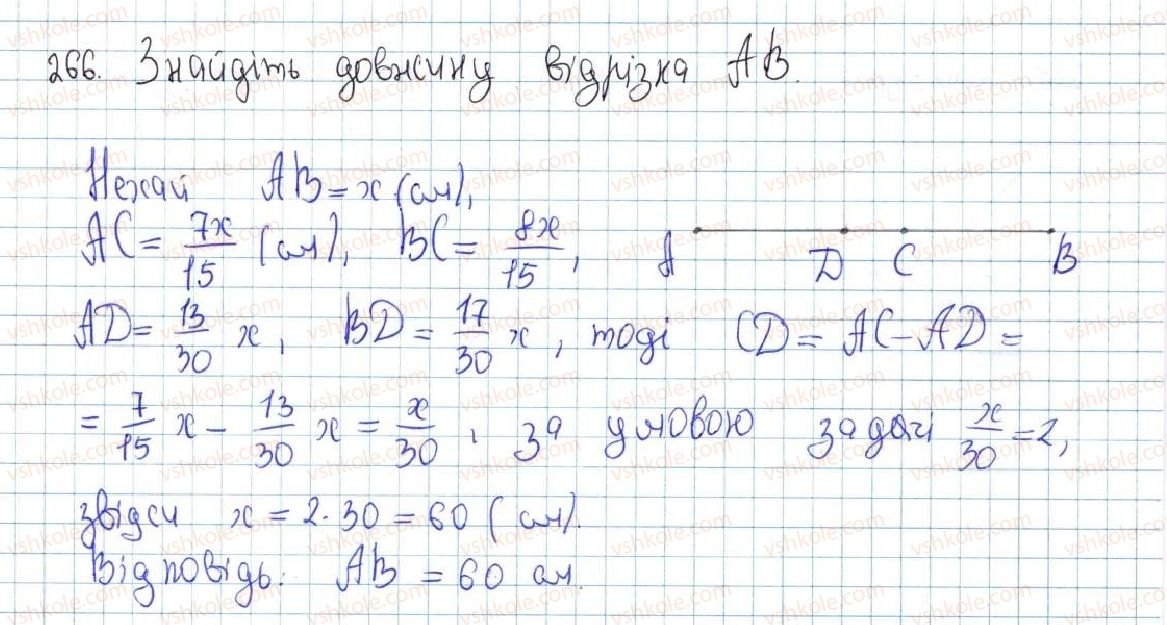 266. Знайдіть довжину відрізка AB.
Нехай AB = x (см),
AC = 7x/15 (см), BC = 8x/15,
A D C B
AD = 13/30 x, BD = 17/30 x, тоді CD = AC - AD =
= 7/15 x - 13/30 x = x/30, за умовою задачі x/30 = 2,
звідси x = 2 · 30 = 60 (см).
Відповідь: AB = 60 см.